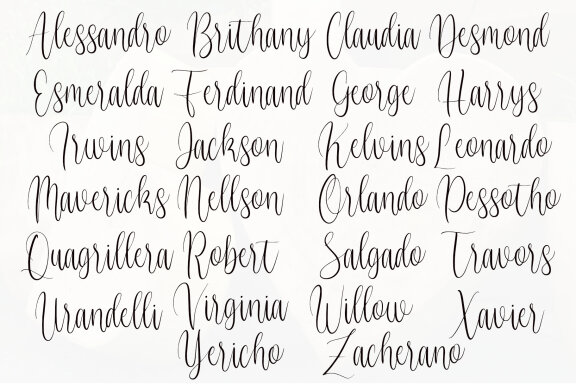 Alessandro Brithany Claudia Desmond
Esmeralda Ferdinand George Harrys
Irwins Jackson Kelvins Leonardo
Mavericks Nellson Orlando Pessotho
Quagrillera Robert Salgado Travors
Urandelli Virginia Willow Xavier
Yericho Zacherano